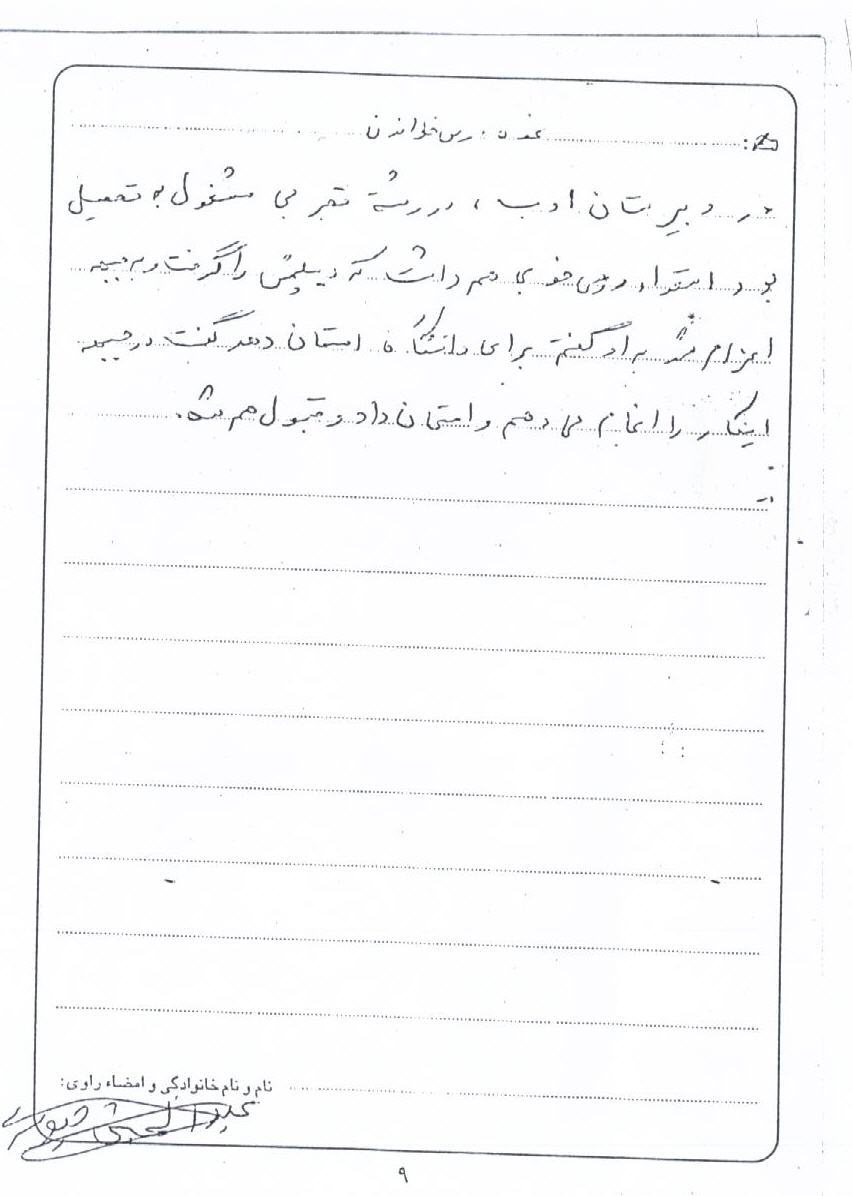 نحوه درس خواندن
در دبیرستان ادب، در رشته تجربی مشغول به تحصیل
بود استعداد درسی خوبی هم داشت که دیپلمش را گرفت و به جبهه
اعزام شد به او گفتم برای دانشگاه امتحان دهد گفت در جبهه
اینکار را انجام می دهم و امتحان داد و قبول هم شد.
نام و نام خانوادگی و امضاء راوی:
۹